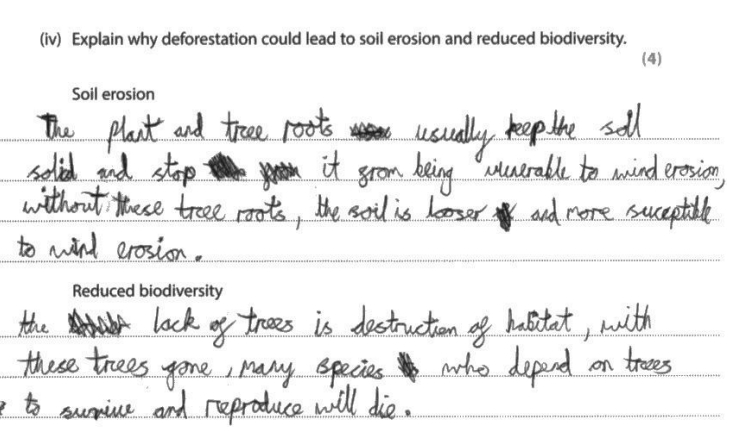 (iv) Explain why deforestation could lead to soil erosion and reduced biodiversity.
(4)
Soil erosion
The plant and tree roots usually keep the soil
solid and stop it from being vulnerable to wind erosion,
without these tree roots, the soil is looser and more suceptible
to wind erosion.
Reduced biodiversity
the lack of trees is destruction of habitat, with
these trees gone, many species who depend on trees
to survive and reproduce will die.